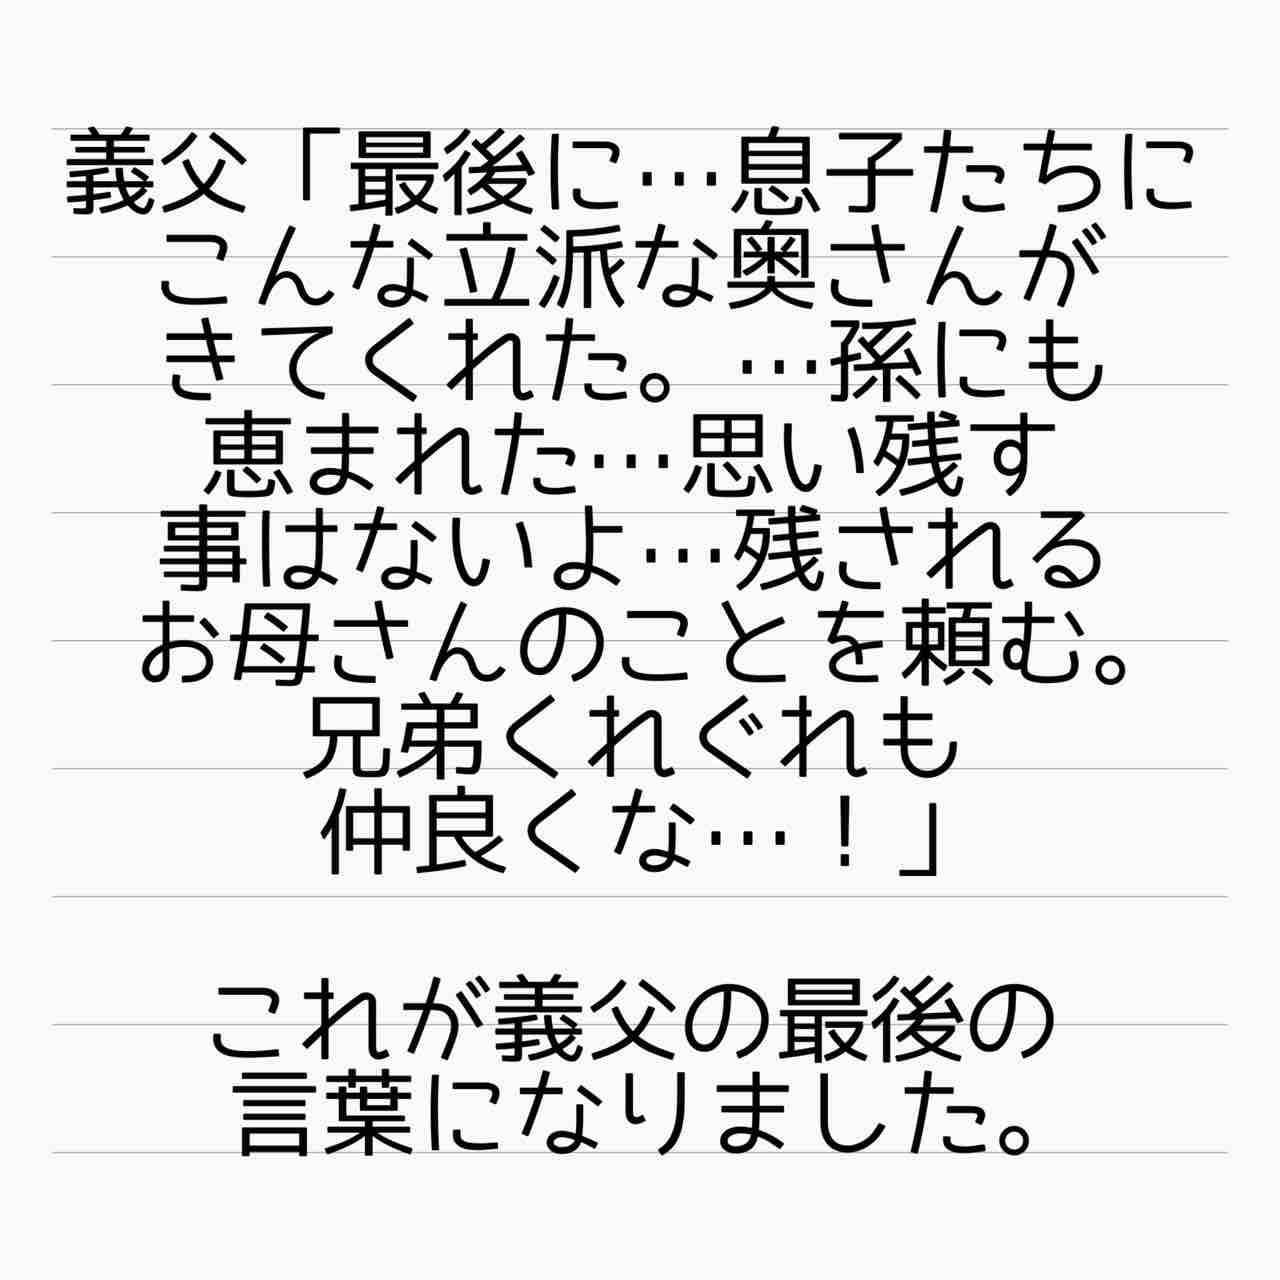 義父「最後に…息子たちに
こんな立派な奥さんが
きてくれた。…孫にも
恵まれた…思い残す
事はないよ…残される
お母さんのことを頼む。
兄弟くれぐれも
仲良くな…！」
これが義父の最後の
言葉になりました。